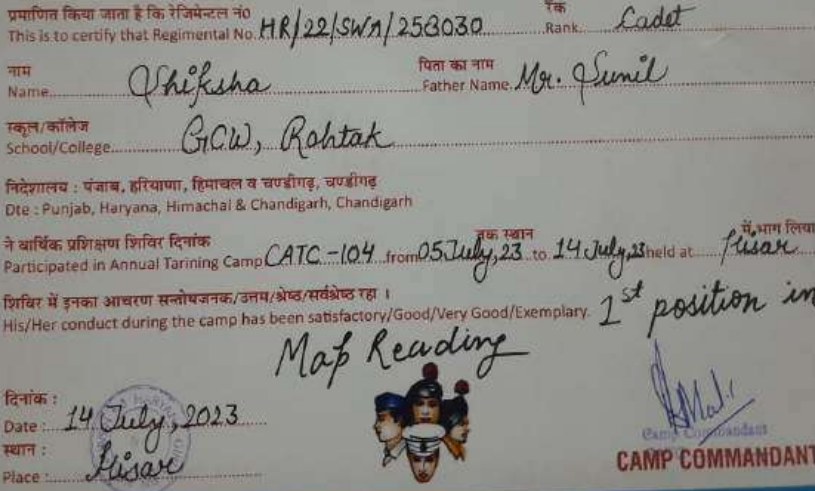 प्रमाणित किया जाता है कि रेजिमेन्टल नं० रैंक
This is to certify that Regimental No. HR/22/SWA/258030 Rank Cadet
नाम पिता का नाम
Name Shiksha Father Name Mr. Sunil
स्कूल/कॉलेज
School/College GCW, Rohtak
निदेशालय : पंजाब, हरियाणा, हिमाचल व चण्डीगढ़, चण्डीगढ़
Dte : Punjab, Haryana, Himachal & Chandigarh, Chandigarh
ने वार्षिक प्रशिक्षण शिविर दिनांक तक स्थान में भाग लिया
Participated in Annual Tarining Camp CATC-104 from 05 July, 23 to 14 July, 23 held at Hisar
शिविर में इनका आचरण सन्तोषजनक/उत्तम/श्रेष्ठ/सर्वश्रेष्ठ रहा ।
His/Her conduct during the camp has been satisfactory/Good/Very Good/Exemplary. 1st position in
Map Reading
दिनांक :
Date : 14 July, 2023
स्थान :
Place : Hisar
Camp Commandant
CAMP COMMANDANT